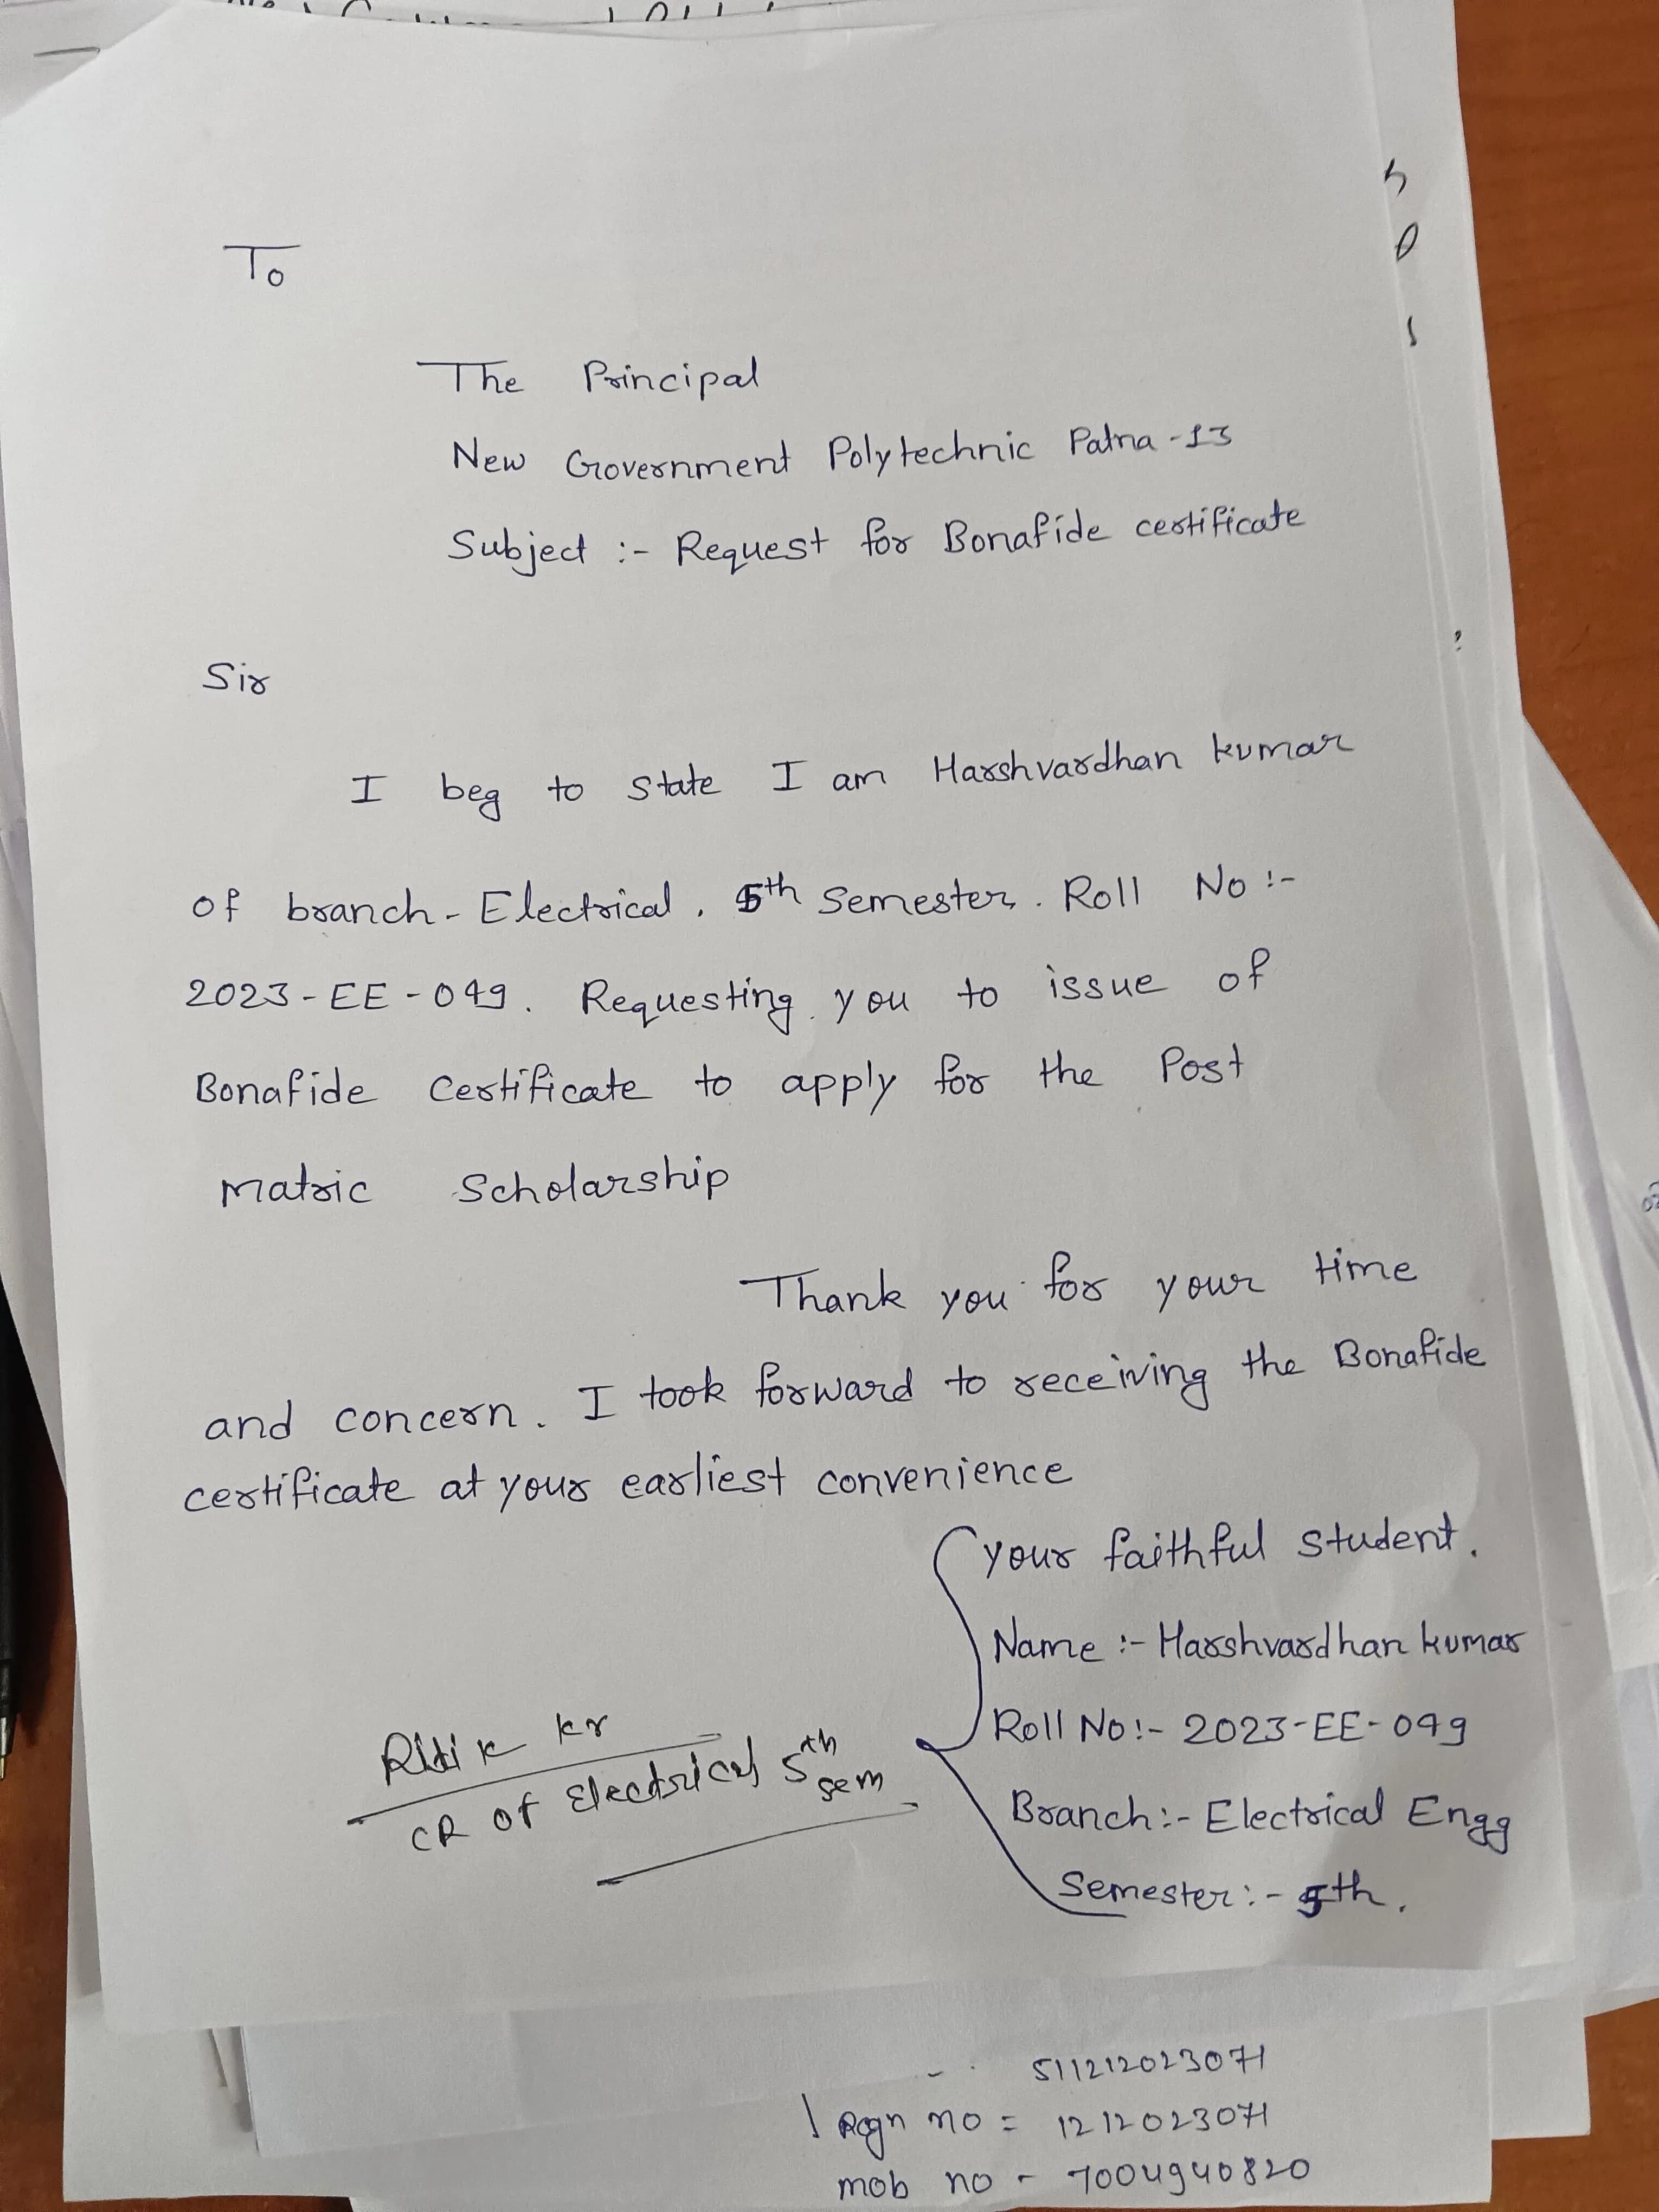 To
The Principal
New Government Polytechnic Patna-13
Subject :- Request for Bonafide certificate
Sir
I beg to state I am Harshvardhan kumar
of branch-Electrical. 5th Semester. Roll No :-
2023-EE-049. Requesting you to issue of
Bonafide Certificate to apply for the Post
Matric Scholarship
Thank you for your time
and concern. I took forward to receiving the Bonafide
certificate at your earliest convenience
your faithful Student.
Name :- Harshvardhan kumar
Roll No:- 2023-EE-049
Branch:- Electrical Engg
Semester:- 5th.
Ritik kr
CR of Electrical 5th sem
511212023071
Regn no = 1212023071
mob no - 7004940820